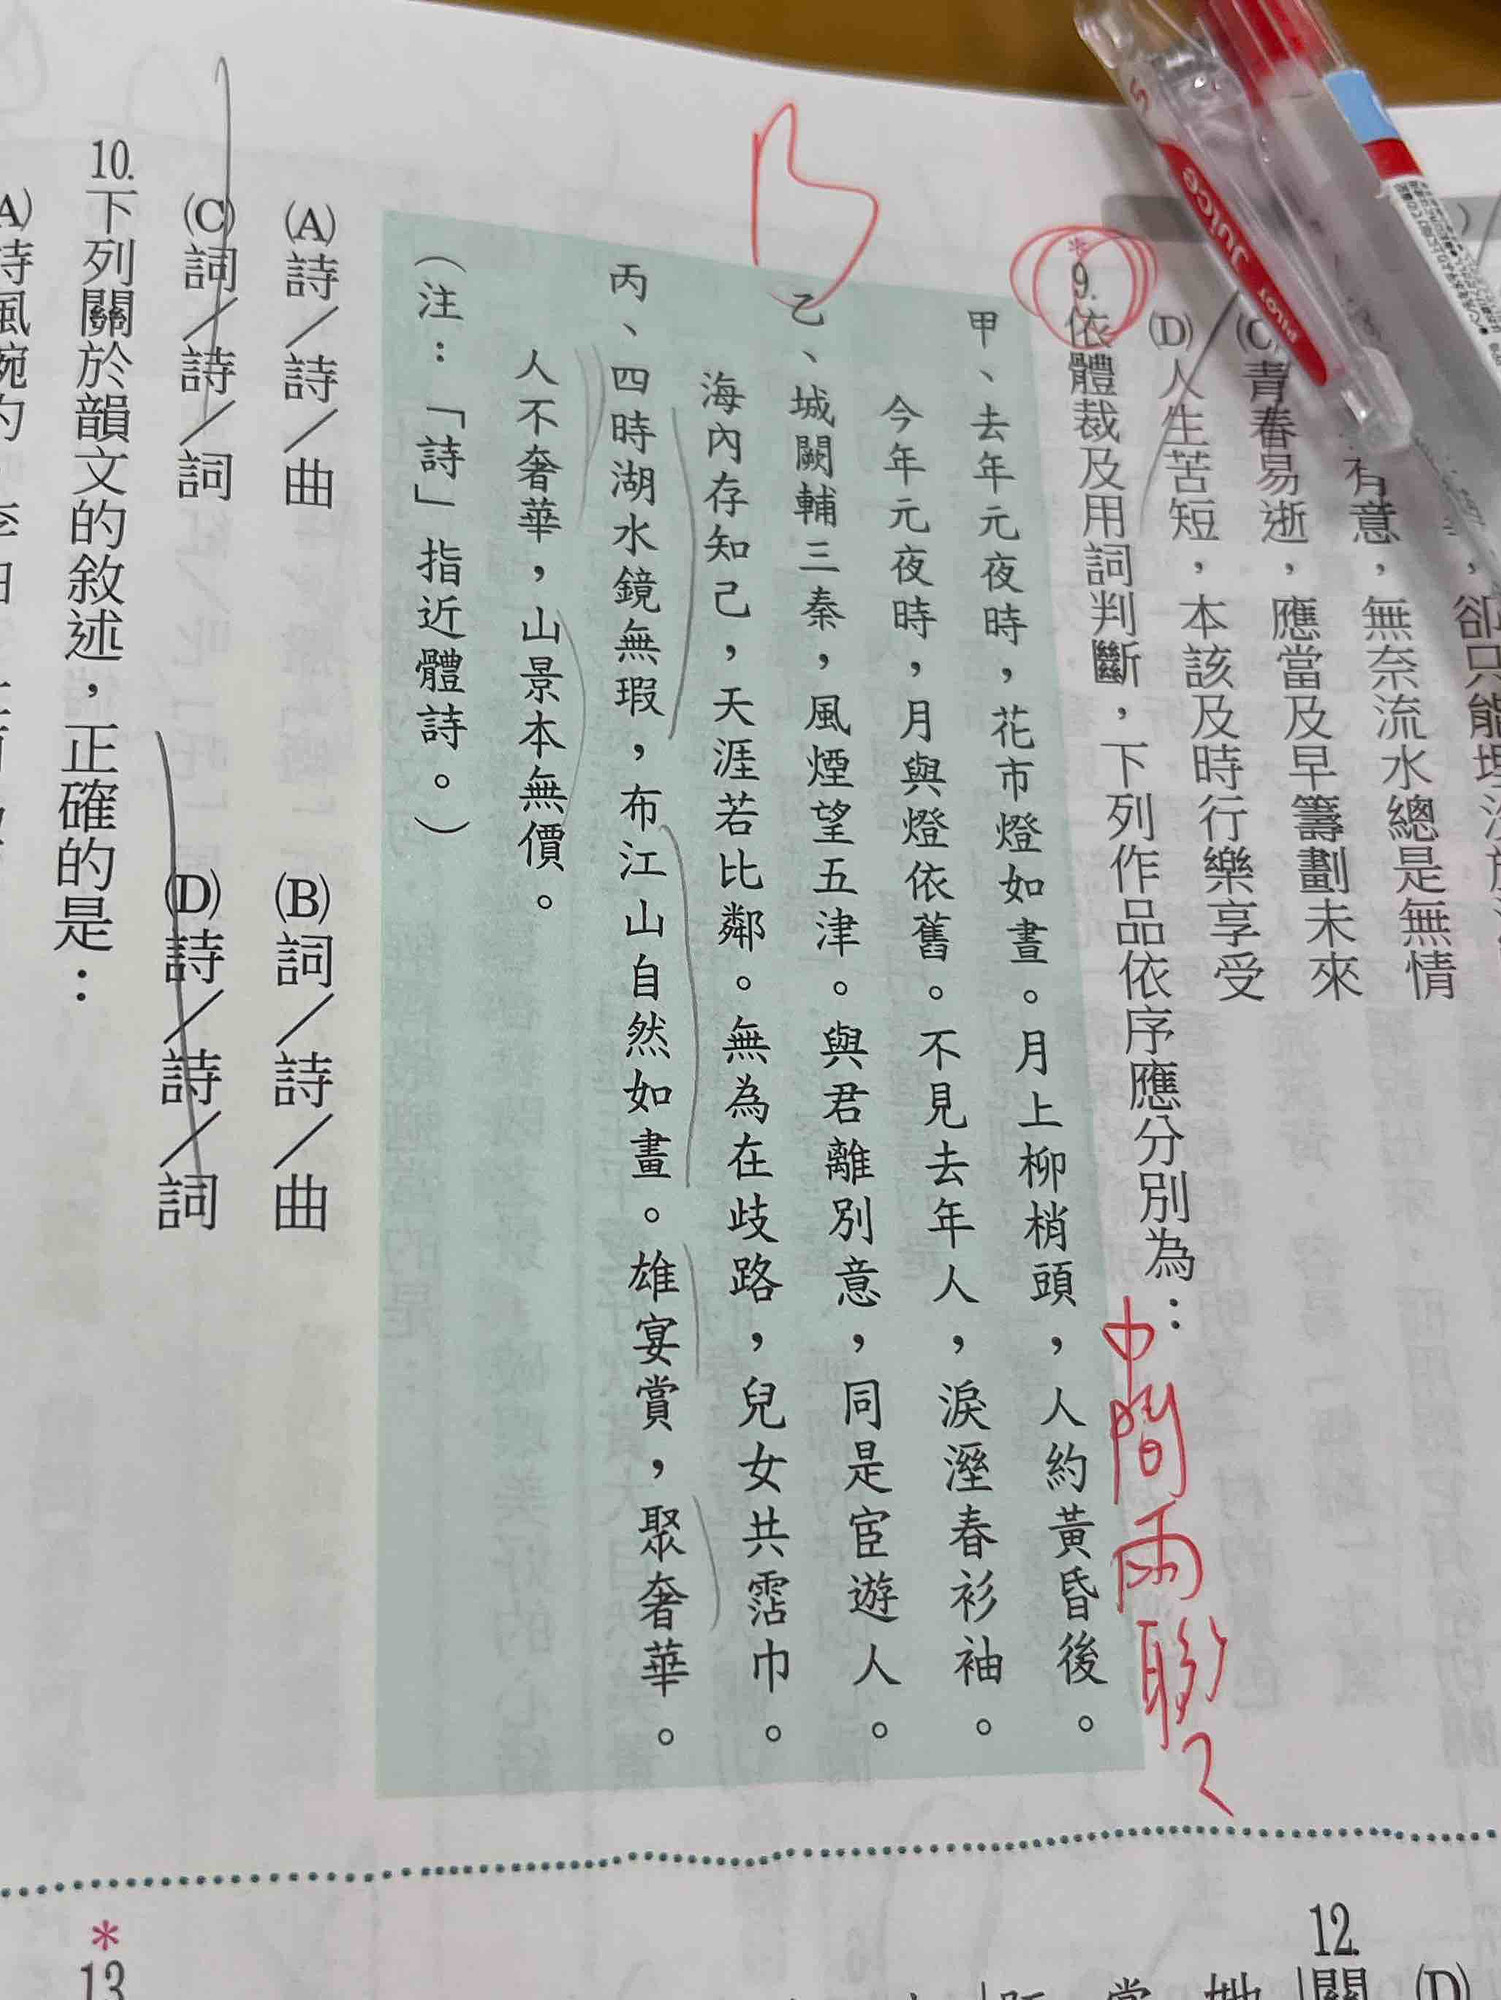 ，卻只能埋沒於
有意，無奈流水總是無情
(C)青春易逝，應當及早籌劃未來
(D)人生苦短，本該及時行樂享受
*9.依體裁及用詞判斷，下列作品依序應分別為：
中間兩聯
甲、去年元夜時，花市燈如晝。月上柳梢頭，人約黃昏後。
今年元夜時，月與燈依舊。不見去年人，淚溼春衫袖。
乙、城闕輔三秦，風煙望五津。與君離別意，同是宦遊人。
海內存知己，天涯若比鄰。無為在歧路，兒女共霑巾。
丙、四時湖水鏡無瑕，布江山自然如畫。雄宴賞，聚奢華。
人不奢華，山景本無價。
（注：「詩」指近體詩。）
B
(A)詩／詩／曲
(B)詞／詩／曲
(C)詞／詩／詞
(D)詩／詩／詞
10.下列關於韻文的敘述，正確的是：
12.
*13
Juice
PILOT